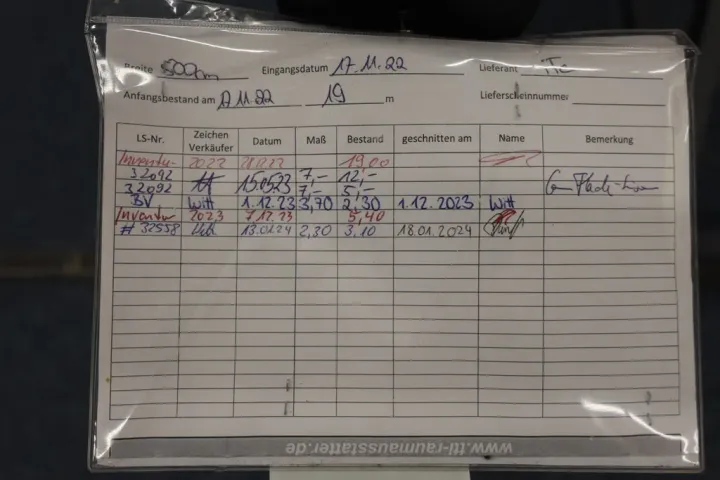 Breite 500cm Eingangsdatum 17.11.22 Lieferant
Anfangsbestand am 17.11.22 19 m Lieferscheinnummer
LS-Nr. Zeichen Verkäufer Datum Maß Bestand geschnitten am Name Bemerkung
Inventur 2023 19,00
32092 15.05.23 7,- 12,-
32092 7,- 5,-
BV Witt 1.12.23 3,70 2,30 1.12.2023 Witt
Inventur 2023 7.12.23 5,40
# 32558 13.01.24 2,30 3,10 18.01.2024
www.ttl-raumausstatter.de